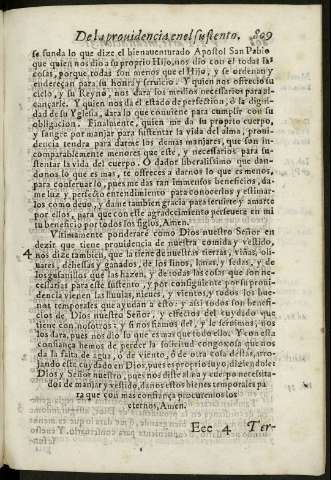 De la prouidencia, en el sustento, 809
se funda lo que dize el bienauenturado Apostol San Pablo
que quien nos dio a su proprio Hijo, nos dio con el todas las
cosas, porque todas son menos que el Hijo, y se ordenan y
endereçan para su honra, y seruicio. Y quien nos ofrecio su
cielo, y su Reyno, nos dara los medios necessarios para al-
cançarle. Y quien nos da el estado de perfection, ò la digni-
dad de su Yglesia, dara lo que conuiene para cumplir con su
obligacion. Finalmente, quien me da su proprio cuerpo,
y sangre por manjar para sustentar la vida del alma, proui-
dencia tendra para darme los demas manjares, que son in-
comparablemente menores que este, y necessarios para su-
stentar la vida del cuerpo. O dador liberalissimo que dan-
donos lo que es mas, te ofreces a darnos lo que es menos,
para conseruarlo, pues me das tan immensos beneficios, da-
me luz y perfecto entendimiento para conocerlos y estimar-
los como deuo, y dame tambien gracia para seruirte y amarte
por ellos, para que con este agradecimiento perseuere en mi
tu beneficio por todos los siglos, Amen.
Vltimamente ponderarè como Dios nuestro Señor en
dezir que tiene prouidencia de nuestra comida y vestido,
4 nos dize tambien, que la tiene de nuestras tierras, viñas, oli-
uares, dehessas y ganados, de los linos, lanas, y sedas, y de
los gusanillos que las hazen, y de todas las cosas que son ne-
cessarias para este sustento, y por consiguiente por su proui-
dencia vienen las lluuias, nieues, y vientos, y todos los bue-
nos temporales que ayudan a esto: y assi todos son benefi-
cios de Dios nuestro Señor, y effectos del cuydado que
tiene con nosotros: y si nos fiamos del, y le seruimos, nos
los dara, pues nos dio lo que es mas que todo ello. Y con esta
confiança hemos de perder la solicitud congoxosa que nos
da la falta de agua, ò de viento, ò de otra cosa destas, arro-
jando este cuydado en Dios, pues es proprio suyo, diziendole:
Dios y Señor nuestro, pues nos diste al ma y cuerpo necessita-
dos de manjar y vestido, danos estos bienes temporales pa
ra que con mas confiança procuremos los
eternos, Amen.
Eee 4 Ter-